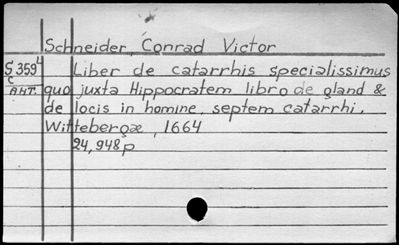 Schneider, Conrad Victor
S 359 L Liber de catarrhis specialissimus
C
ANT. quo juxta Hippocratem libro de gland &
de locis in homine, septem catarrhi.
Wittebergæ, 1664
24, 948 p